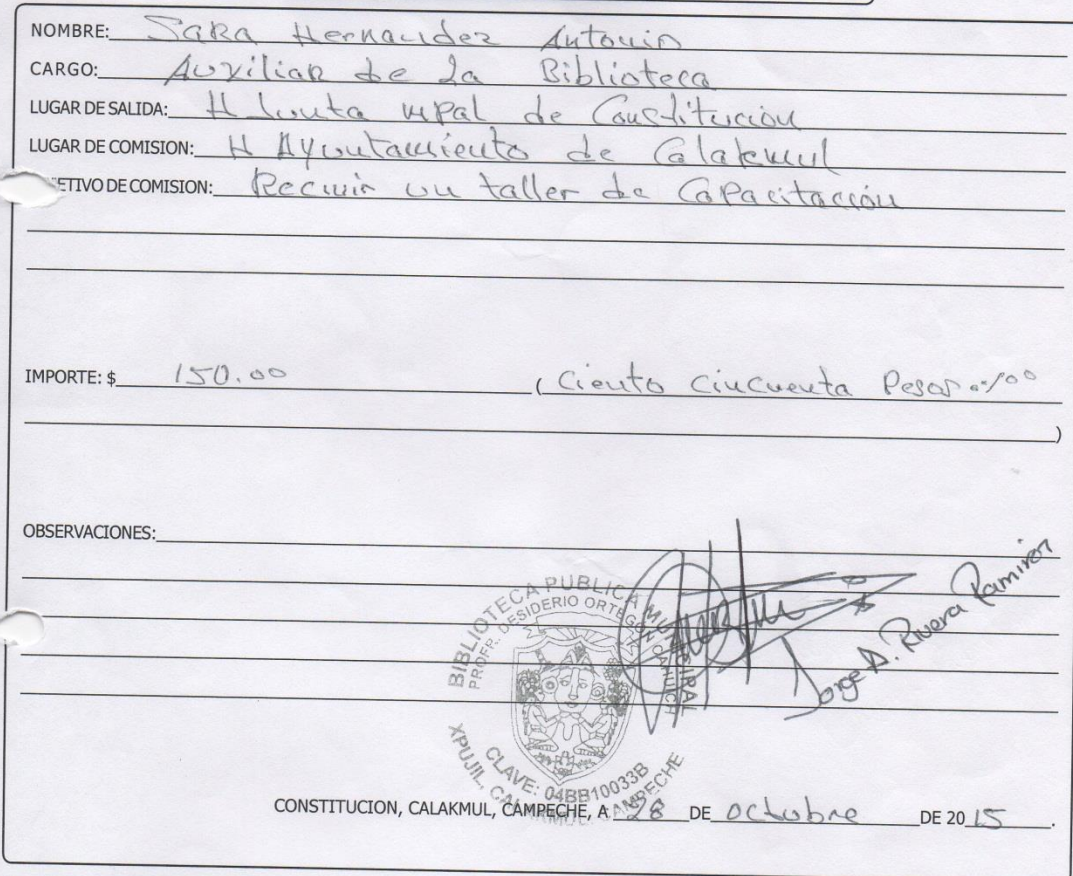 NOMBRE: Sara Hernandez Antonio
CARGO: Auxiliar de la Biblioteca
LUGAR DE SALIDA: H Junta mpal de Constitucion
LUGAR DE COMISION: H Ayuntamiento de Calakmul
ETIVO DE COMISION: Recivir un taller de Capacitación
IMPORTE: $ 150.00 (Ciento Cincuenta Pesos 00/00
)
OBSERVACIONES:
Jorge A. Rivera Ramirez
BIBLIOTECA PUBLICA MUNICIPAL
PROFR. DESIDERIO ORTEGON CAHUICH
CLAVE: 04BB10033B
XPUJIL, CALAKMUL, CAMPECHE
CONSTITUCION, CALAKMUL, CAMPECHE, A 28 DE Octubre DE 2015.